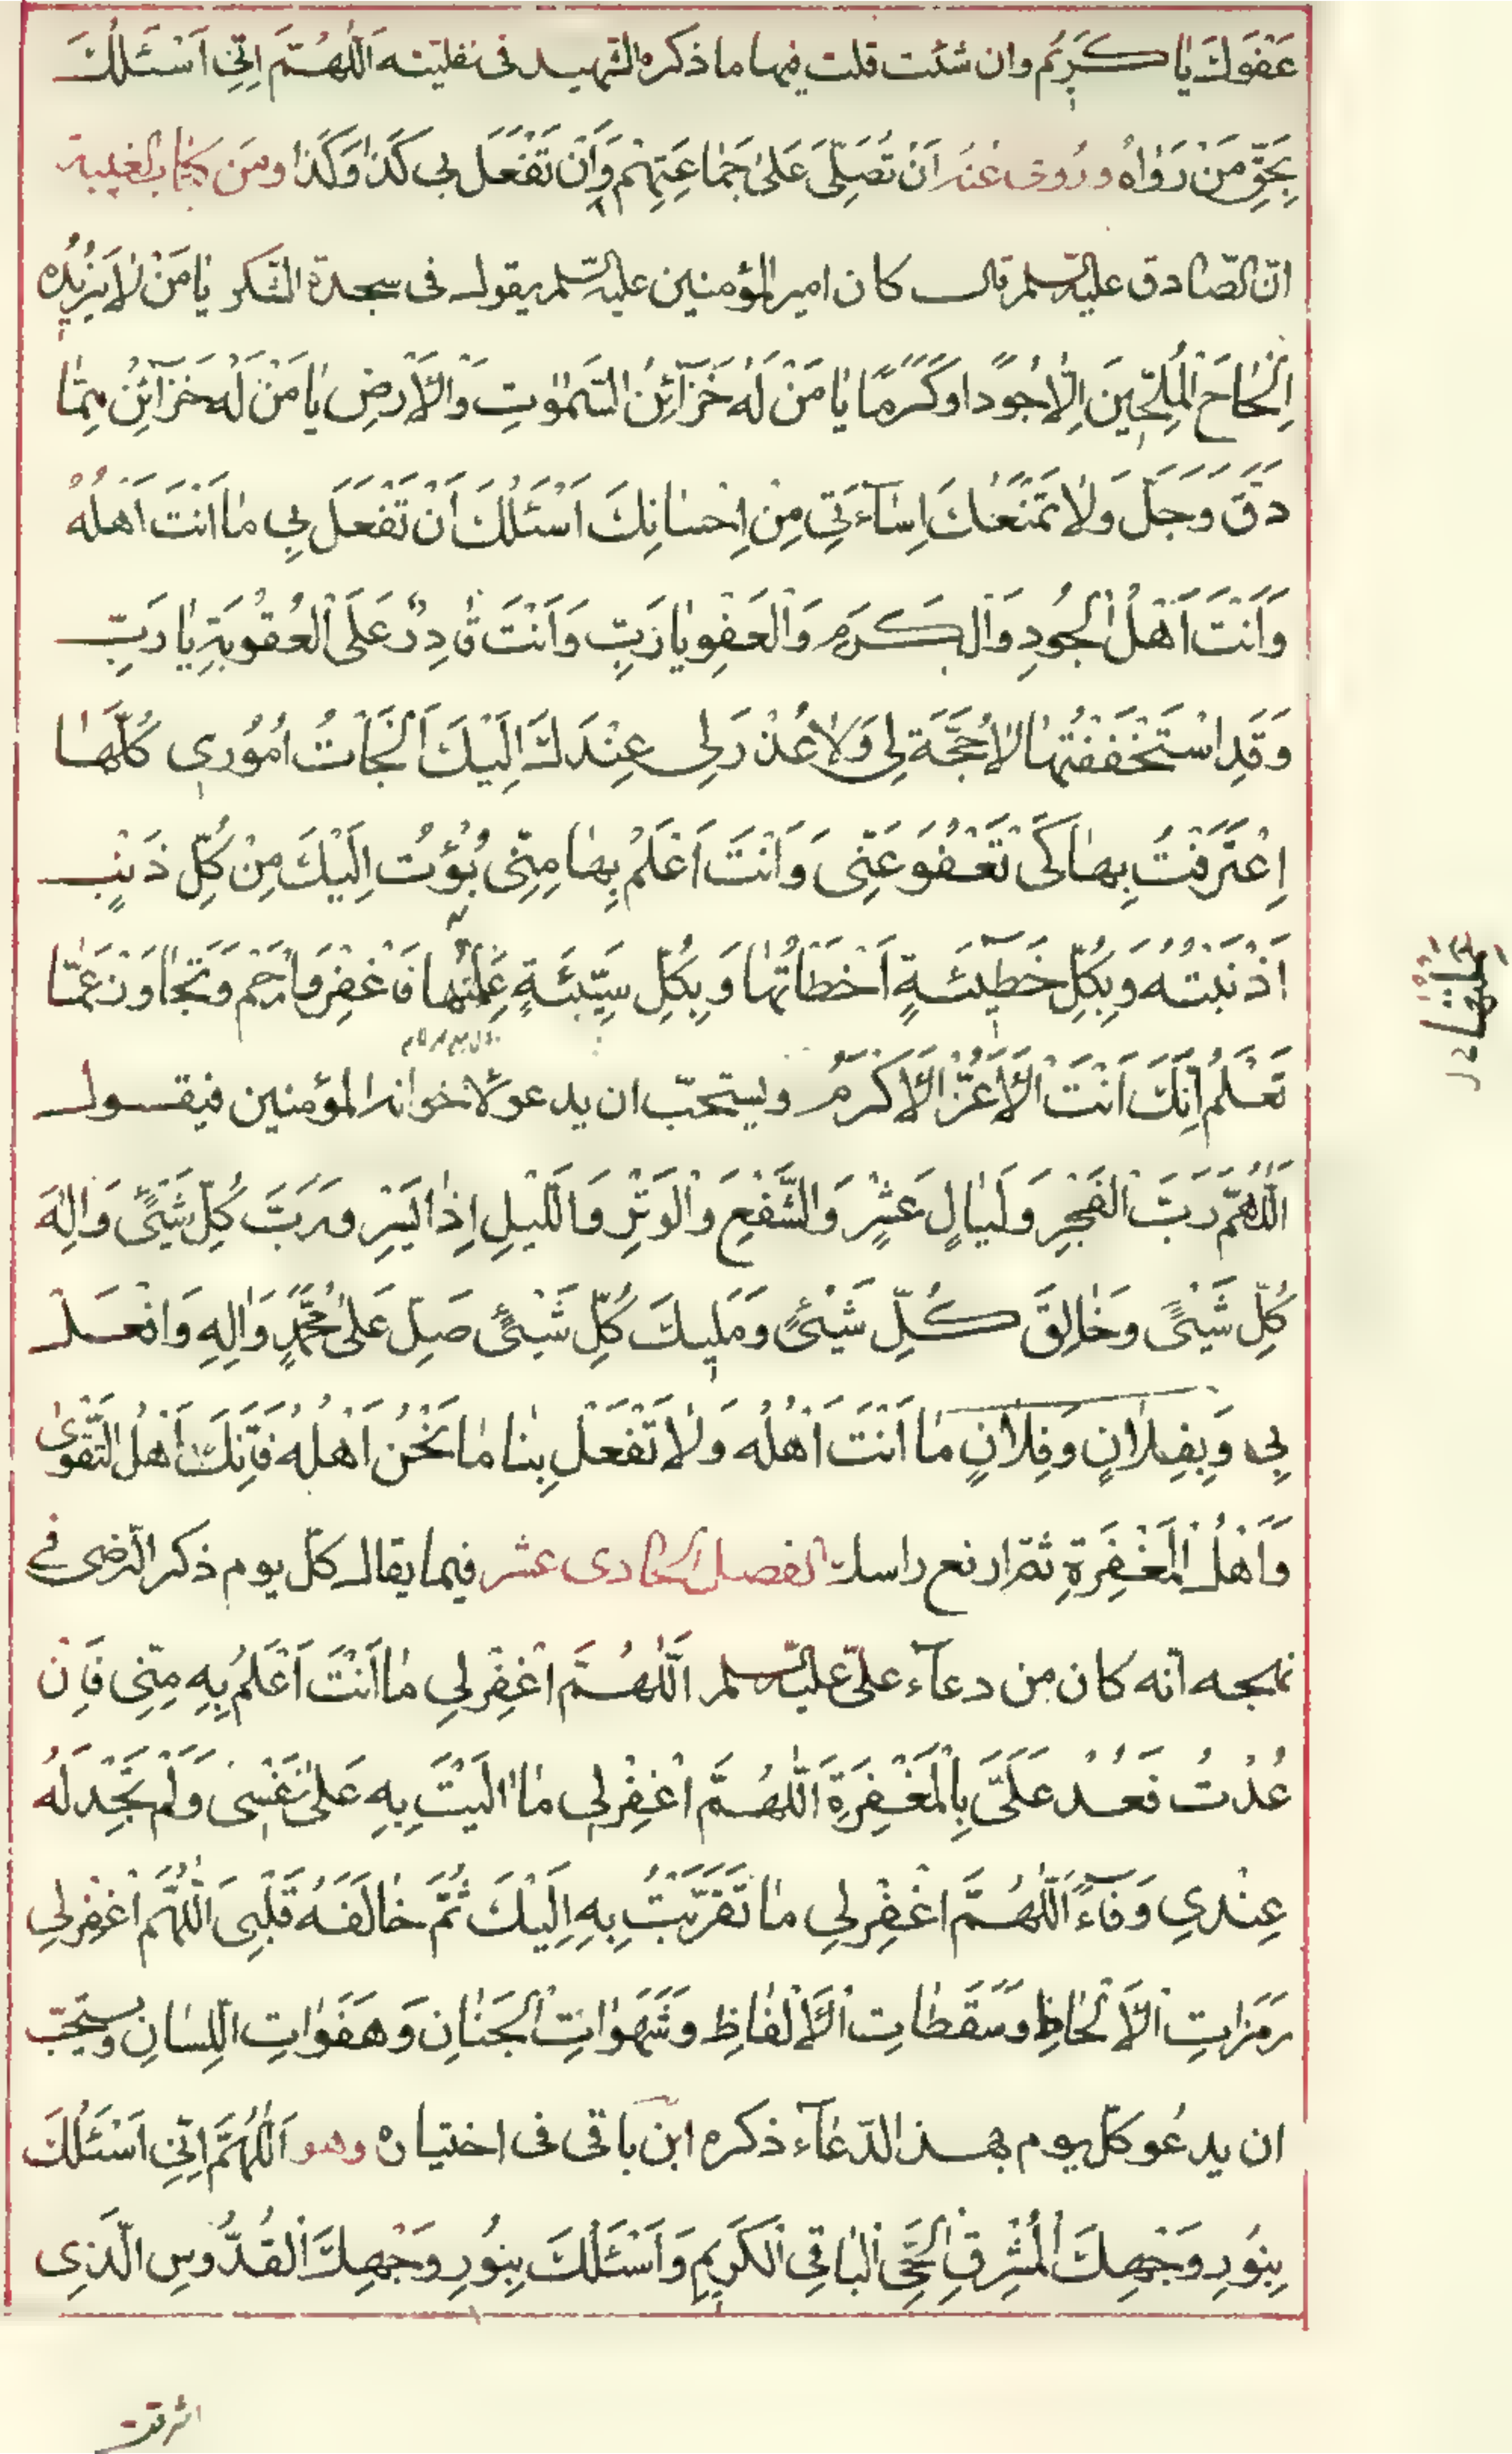 عَفْوَكَ يَا كَرِيمُ وان شئت قلت فيها ما ذكره الشهيد فى نفليته اَللّٰهُمَّ اِنِّي اَسْئَلُكَ
بِحَقِّ مَنْ رَوَاهُ وَرُوِىَ عَنْهُ اَنْ تُصَلِّىَ عَلىٰ جَمَاعَتِهِمْ وَاَنْ تَفْعَلَ بِى كَذَا وَكَذَا ومن كتاب الغيبة
انّ الصّادق عليه السّلم قال كان امير المؤمنين عليه السّلم يقول فى سجدة الشكر يَا مَنْ لَا يَزِيدُه
اِلْحَاحُ الْمُلِحِّينَ اِلَّا جُودًا وَكَرَمًا يَا مَنْ لَهُ خَزَآئِنُ السَّمٰوٰتِ وَالْاَرْضِ يَا مَنْ لَهُ خَزَآئِنُ مَا
دَقَّ وَجَلَّ وَلَا تَمْنَعُكَ اِسَآءَتِي مِنْ اِحْسَانِكَ اَسْئَلُكَ اَنْ تَفْعَلَ بِي مَا اَنْتَ اَهْلُهُ
وَاَنْتَ اَهْلُ الْجُودِ وَالْكَرَمِ وَالْعَفْوِ يَا رَبِّ وَاَنْتَ قَادِرٌ عَلَى الْعُقُوبَةِ يَا رَبِّ
وَقَدِ اسْتَحْقَقْتُهَا لَا حُجَّةَ لِي وَلَا عُذْرَ لِي عِنْدَكَ اِلَيْكَ اَلْجَاْتُ اُمُوْرِي كُلَّهَا
اِعْتَرَفْتُ بِهَا كَىْ تَعْفُوَ عَنِّى وَاَنْتَ اَعْلَمُ بِهَا مِنِّى بُؤْتُ اِلَيْكَ مِنْ كُلِّ ذَنْبٍ
اَذْنَبْتُهُ وَبِكُلِّ خَطِيئَةٍ اَخْطَاْتُهَا وَبِكُلِّ سَيِّئَةٍ عَمِلْتُهَا فَاغْفِرْ وَارْحَمْ وَتَجَاوَزْ عَمَّا
تَعْلَمُ اِنَّكَ اَنْتَ الْاَعَزُّ الْاَكْرَمُ ويستحبّ ان يدعو لاخوانه المؤمنين فيقول
اَللّٰهُمَّ رَبَّ الْفَجْرِ وَلَيَالٍ عَشْرٍ وَالشَّفْعِ وَالْوَتْرِ وَاللَّيْلِ اِذَا يَسْرِ وَرَبَّ كُلِّ شَيْئٍ وَاِلٰهَ
كُلِّ شَيْئٍ وَخَالِقَ كُلِّ شَيْئٍ وَمَلِيكَ كُلِّ شَيْئٍ صَلِّ عَلىٰ مُحَمَّدٍ وَاٰلِهِ وَافْعَلْ
بِي وَبِفُلَانٍ وَفُلَانٍ مَا اَنْتَ اَهْلُهُ وَلَا تَفْعَلْ بِنَا مَا نَحْنُ اَهْلُهُ فَاِنَّكَ اَهْلُ التَّقْوىٰ
وَاَهْلُ الْمَغْفِرَةِ ثمّ ارفع راسك الفصل الحادى عشر فيما يقال كلّ يوم ذكر الرّضى في
نهجه انّه كان من دعآء علىّ عليه السّلم اَللّٰهُمَّ اغْفِرْ لِي مَا اَنْتَ اَعْلَمُ بِهِ مِنِّي فَاِنْ
عُدْتُ فَعُدْ عَلَىَّ بِالْمَغْفِرَةِ اَللّٰهُمَّ اغْفِرْ لِي مَا اٰلَيْتُ بِهِ عَلىٰ نَفْسِى وَلَمْ تَجِدْ لَهُ
عِنْدِي وَفَآءً اَللّٰهُمَّ اغْفِرْ لِي مَا تَقَرَّبْتُ بِهِ اِلَيْكَ ثُمَّ خَالَفَهُ قَلْبِى اَللّٰهُمَّ اغْفِرْ لِي
رَمَزَاتِ الْاَلْحَاظِ وَسَقَطَاتِ الْاَلْفَاظِ وَشَهَوَاتِ الْجَنَانِ وَهَفَوَاتِ اللِّسَانِ ويستحبّ
ان يدعو كلّ يوم بهذ الدّعآء ذكره ابن باقى فى اختياره وهو اَللّٰهُمَّ اِنِّي اَسْئَلُكَ
بِنُورِ وَجْهِكَ الْمُشْرِقِ الْحَىِّ الْبَاقِي الْكَرِيمِ وَاَسْئَلُكَ بِنُورِ وَجْهِكَ الْقُدُّوسِ الَّذِى
اشرقت